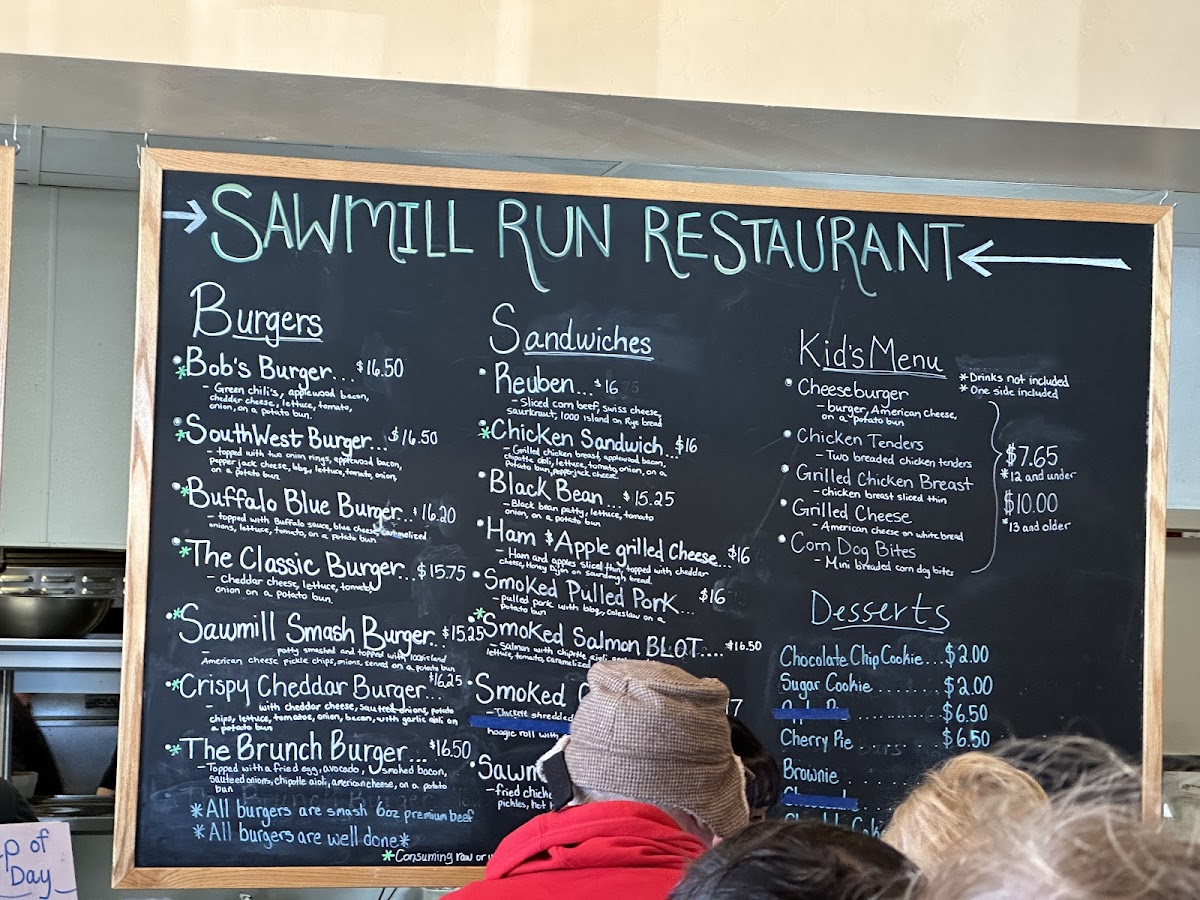 SAWMILL RUN RESTAURANT
Burgers
*Bob's Burger... $16.50
- Green chili's, applewood bacon,
chedder cheese, lettuce, tomato,
onion, on a potato bun.
*SouthWest Burger... $16.50
- topped with two onion rings, applewood bacon,
pepper jack cheese, bbq, lettuce, tomato, onion,
on a potato bun
*Buffalo Blue Burger.. $16.20
- topped with Buffalo sauce, blue cheese, caramelized
onions, lettuce, tomato, on a potato bun
*The Classic Burger... $15.75
- Cheddar cheese, lettuce, tomato,
onion on a potato bun.
*Sawmill Smash Burger. $15.25
- patty smashed and topped with 1000 island
American cheese pickle chips, onions, served on a potato bun
*Crispy Cheddar Burger... $16.25
- with cheddar cheese, sauteed onions, potato
chips, lettuce, tomatoe, onion, bacon, with garlic aioli on
a potato bun
*The Brunch Burger... $16.50
- Topped with a fried egg, avocado, smoked bacon,
sauteed onions, chipotle aioli, american cheese, on a potato
bun
*All burgers are smash 6oz premium beef
*All burgers are well done*
*Consuming raw or
Sandwiches
Reuben... $16
- Sliced corn beef, swiss cheese,
saurkraut, 1000 island on Rye bread
*Chicken Sandwich.. $16
- Grilled chicken breast, applewood bacon,
chipotle aioli, lettuce, tomato, onion, on a
potato bun, pepperjack cheese.
Black Bean... $15.25
- Black bean patty, lettuce, tomato
onion, on a potato bun.
Ham & Apple grilled Cheese... $16
- Ham and apples sliced thin, topped with chedder
cheese, Honey Dijon on sourdough bread.
Smoked Pulled Pork... $16
- pulled pork with bbq, coleslaw on a
Potato bun
*Smoked Salmon BLOT.... $16.50
- Salmon with chipotle aioli,
lettuce, tomato, caramelized
Smoked 17
shredded
hoagie roll with
Sawm
- fried chicke
pickles, hot
Kid's Menu
*Drinks not included
*One side included
Cheeseburger
- burger, American cheese,
on a potato bun
Chicken Tenders
- Two breaded chicken tenders
Grilled Chicken Breast
- chicken breast sliced thin
Grilled Cheese
- American cheese on white bread
Corn Dog Bites
- Mini breaded corn dog bites
$7.65
*12 and under
$10.00
*13 and older
Desserts
Chocolate Chip Cookie... $2.00
Sugar Cookie ....... $2.00
$6.50
Cherry Pie $6.50
Brownie
p of
Day